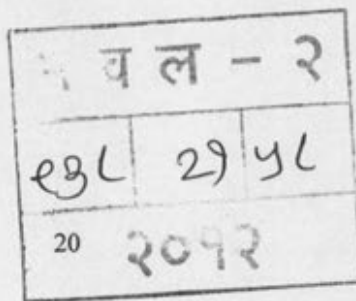 व ल - २
९३८ २१ ५८
20 २०१२